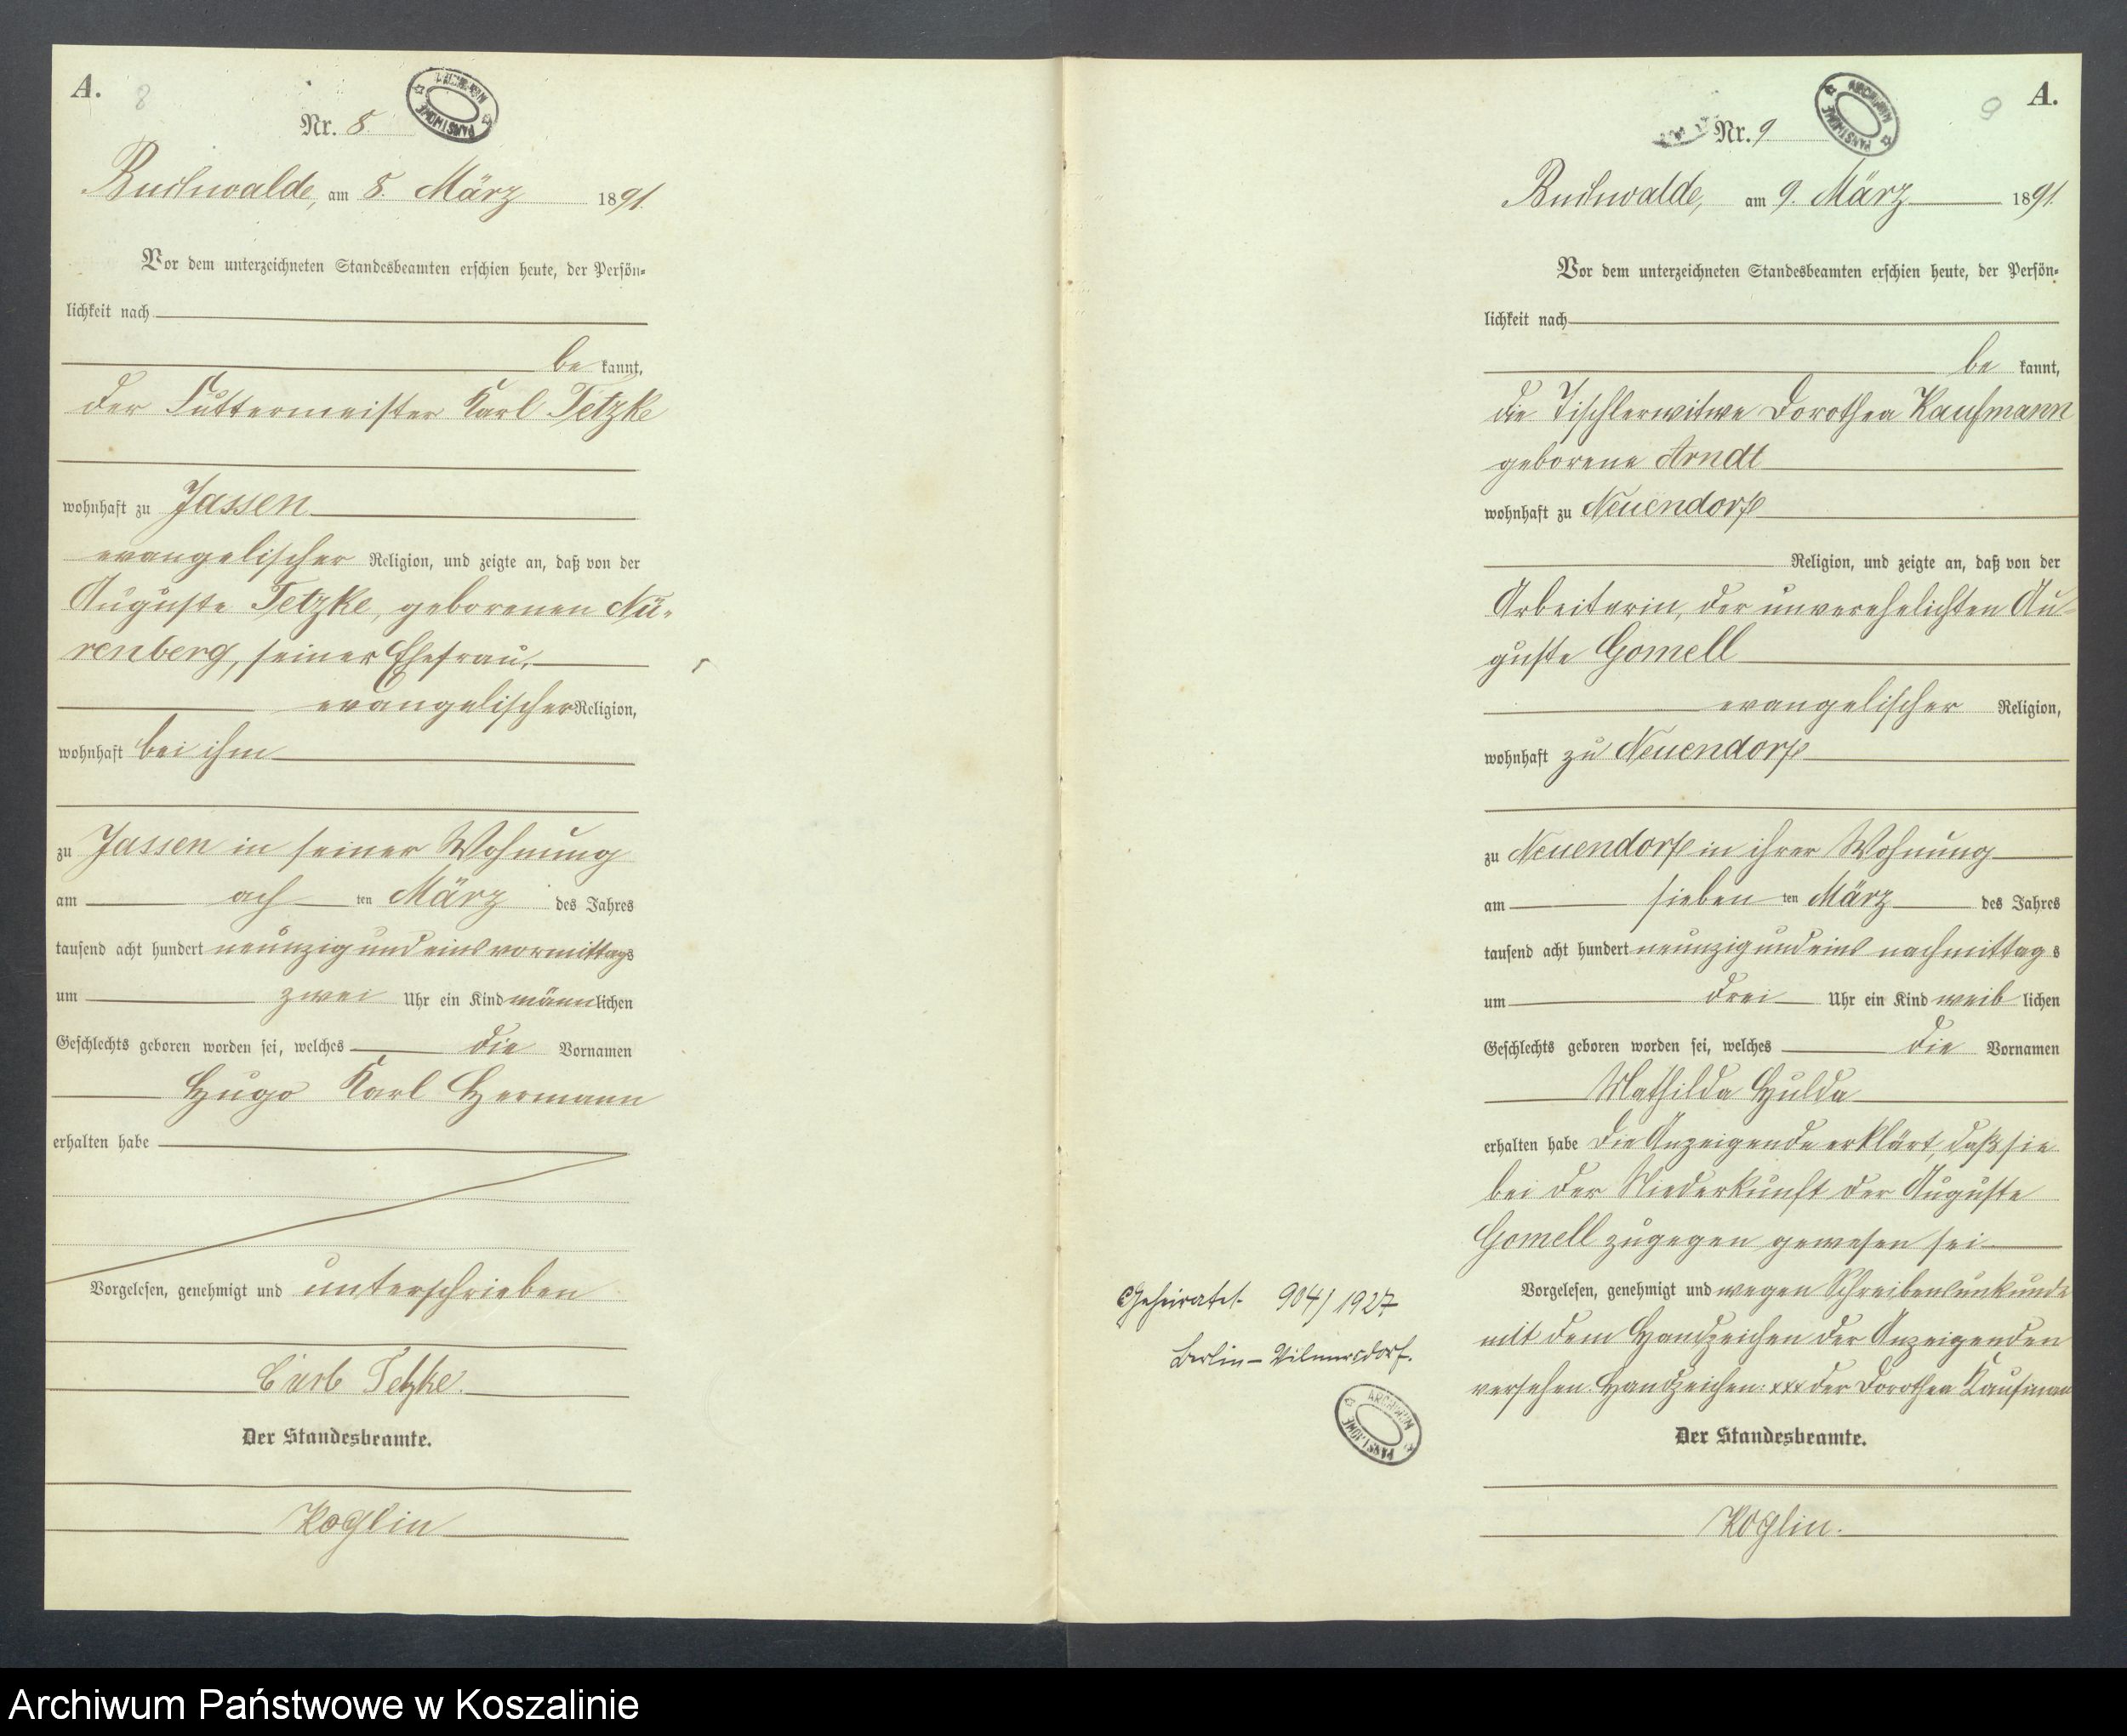 A.
8
Nr. 8.
ARCHIWUM PAŃSTWOWE
Buchwalde, am 8. März 1891.
Vor dem unterzeichneten Standesbeamten erschien heute, der Persön-
lichkeit nach
be kannt,
der Futtermeister Karl Tetzke
wohnhaft zu Jassen
evangelischer Religion, und zeigte an, daß von der
Auguste Tetzke, geborenen Nü-
renberg, seiner Ehefrau,
evangelischer Religion,
wohnhaft bei ihm
zu Jassen in seiner Wohnung
am ach ten März des Jahres
tausend acht hundert neunzig und eins vormittags
um zwei Uhr ein Kind männlichen
Geschlechts geboren worden sei, welches die Vornamen
Hugo Karl Hermann
erhalten habe
Vorgelesen, genehmigt und unterschrieben
Tetzke.
Der Standesbeamte.
Koglin
A.
9
Nr. 9
ARCHIWUM PAŃSTWOWE
Buchwalde, am 9. März 1891.
Vor dem unterzeichneten Standesbeamten erschien heute, der Persön-
lichkeit nach
be kannt,
die Tischlerwitwe Dorothea Kaufmann
geborene Arndt
wohnhaft zu Neuendorf
Religion, und zeigte an, daß von der
Arbeiterin, der unverehelichten Au-
guste Gomell
evangelischer Religion,
wohnhaft zu Neuendorf
zu Neuendorf in ihrer Wohnung
am sieben ten März des Jahres
tausend acht hundert neunzig und eins nachmittags
um drei Uhr ein Kind weib lichen
Geschlechts geboren worden sei, welches die Vornamen
Mathilda Hulda
erhalten habe die Anzeigende erklärt, daß sie
bei der Niederkunft der Auguste
Gomell zugegen gewesen sei
Vorgelesen, genehmigt und wegen Schreibensunkunde
mit dem Handzeichen der Anzeigenden
versehen. Handzeichen: xxx der Dorothea Kaufmann
Der Standesbeamte.
Koglin.
Geheiratet 904/1927
Berlin-Wilmersdorf.
ARCHIWUM PAŃSTWOWE
Archiwum Państwowe w Koszalinie